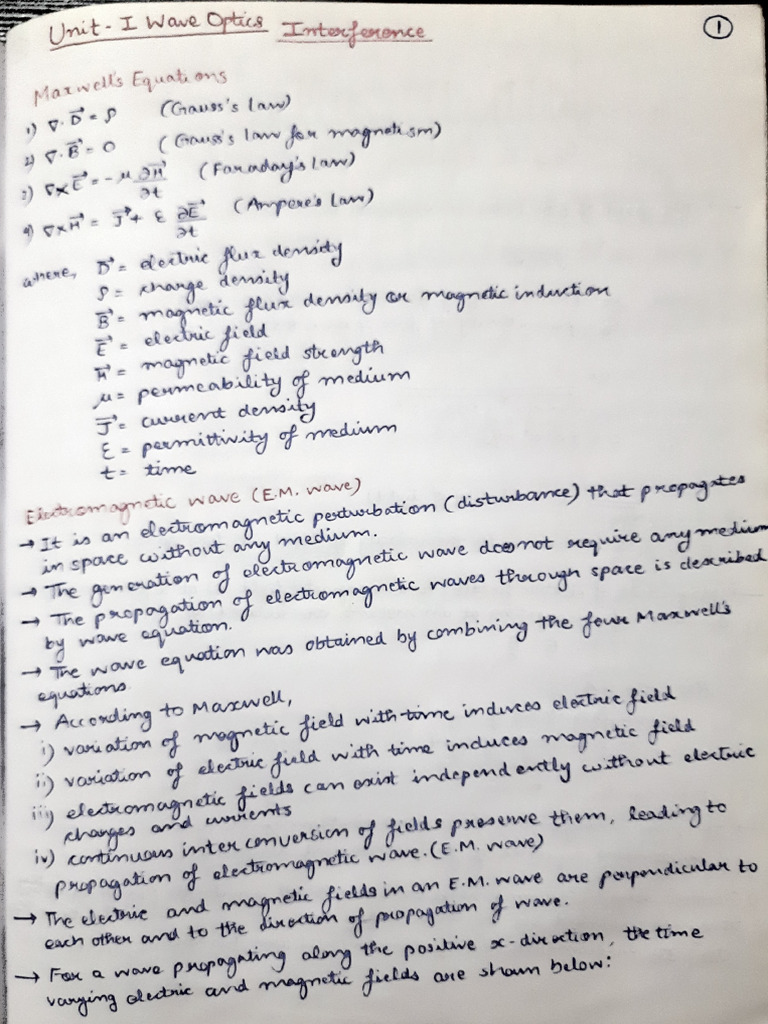 Unit - I Wave Optics Interference
1
Maxwell's Equations
1) ∇·D⃗ = ρ (Gauss's law)
2) ∇·B⃗ = 0 (Gauss's law for magnetism)
3) ∇×E⃗ = -μ ∂H⃗/∂t (Faraday's law)
4) ∇×H⃗ = J⃗ + ε ∂E⃗/∂t (Ampere's law)
where, D⃗ = electric flux density
ρ = charge density
B⃗ = magnetic flux density or magnetic induction
E⃗ = electric field
H⃗ = magnetic field strength
μ = permeability of medium
J⃗ = current density
ε = permittivity of medium
t = time
Electromagnetic wave (E.M. wave)
→ It is an electromagnetic perturbation (disturbance) that propagates
in space without any medium.
→ The generation of electromagnetic wave does not require any medium
→ The propagation of electromagnetic waves through space is described
by wave equation.
→ The wave equation was obtained by combining the four Maxwell's
equations
→ According to Maxwell,
i) variation of magnetic field with time induces electric field
ii) variation of electric field with time induces magnetic field
iii) electromagnetic fields can exist independently without electric
charges and currents
iv) continuous inter conversion of fields preserve them, leading to
propagation of electromagnetic wave. (E.M. wave)
→ The electric and magnetic fields in an E.M. wave are perpendicular to
each other and to the direction of propagation of wave.
→ For a wave propagating along the positive x-direction, the time
varying electric and magnetic fields are shown below: